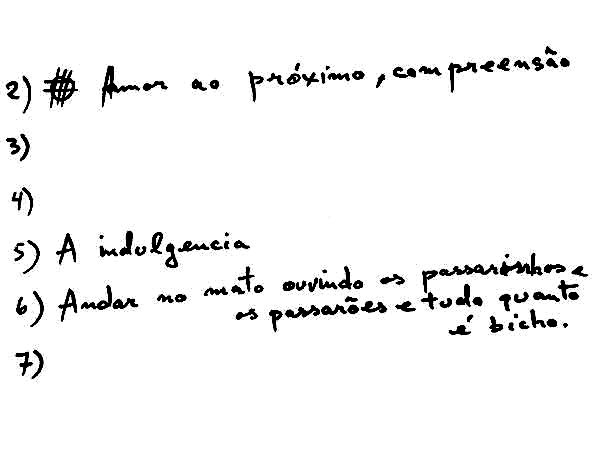 2) Amor ao próximo, compreensão
3)
4)
5) A indulgencia
6) Andar no mato ouvindo os passarinhos e
os passarões e tudo quanto
é bicho.
7)